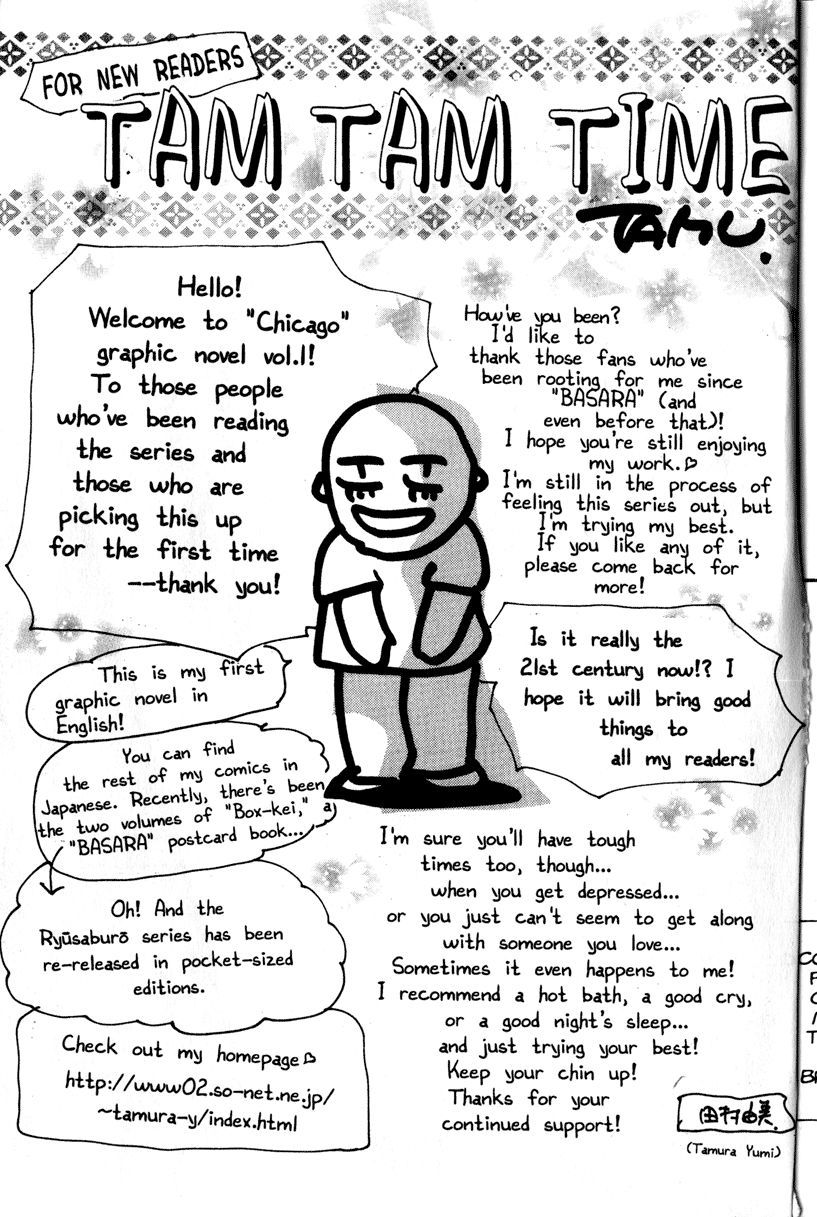 FOR NEW READERS
TAM TAM TIME
TAMU.
Hello!
Welcome to "Chicago"
graphic novel vol.1!
To those people
who've been reading
the series and
those who are
picking this up
for the first time
--thank you!
How've you been?
I'd like to
thank those fans who've
been rooting for me since
"BASARA" (and
even before that)!
I hope you're still enjoying
my work.♡
I'm still in the process of
feeling this series out, but
I'm trying my best.
If you like any of it,
please come back for
more!
Is it really the
21st century now!? I
hope it will bring good
things to
all my readers!
This is my first
graphic novel in
English!
You can find
the rest of my comics in
Japanese. Recently, there's been
the two volumes of "Box-kei," a
"BASARA" postcard book...
Oh! And the
Ryūsaburō series has been
re-released in pocket-sized
editions.
Check out my homepage♡
http://www02.so-net.ne.jp/
~tamura-y/index.html
I'm sure you'll have tough
times too, though...
when you get depressed...
or you just can't seem to get along
with someone you love...
Sometimes it even happens to me!
I recommend a hot bath, a good cry,
or a good night's sleep...
and just trying your best!
Keep your chin up!
Thanks for your
continued support!
田村由美
(Tamura Yumi)